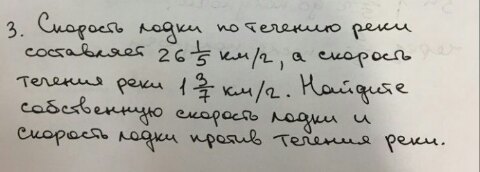 3. Скорость лодки по течению реки
составляет 26 1/5 км/г, а скорость
течения реки 1 3/7 км/г. Найдите
собственную скорость лодки и
скорость лодки против течения реки.